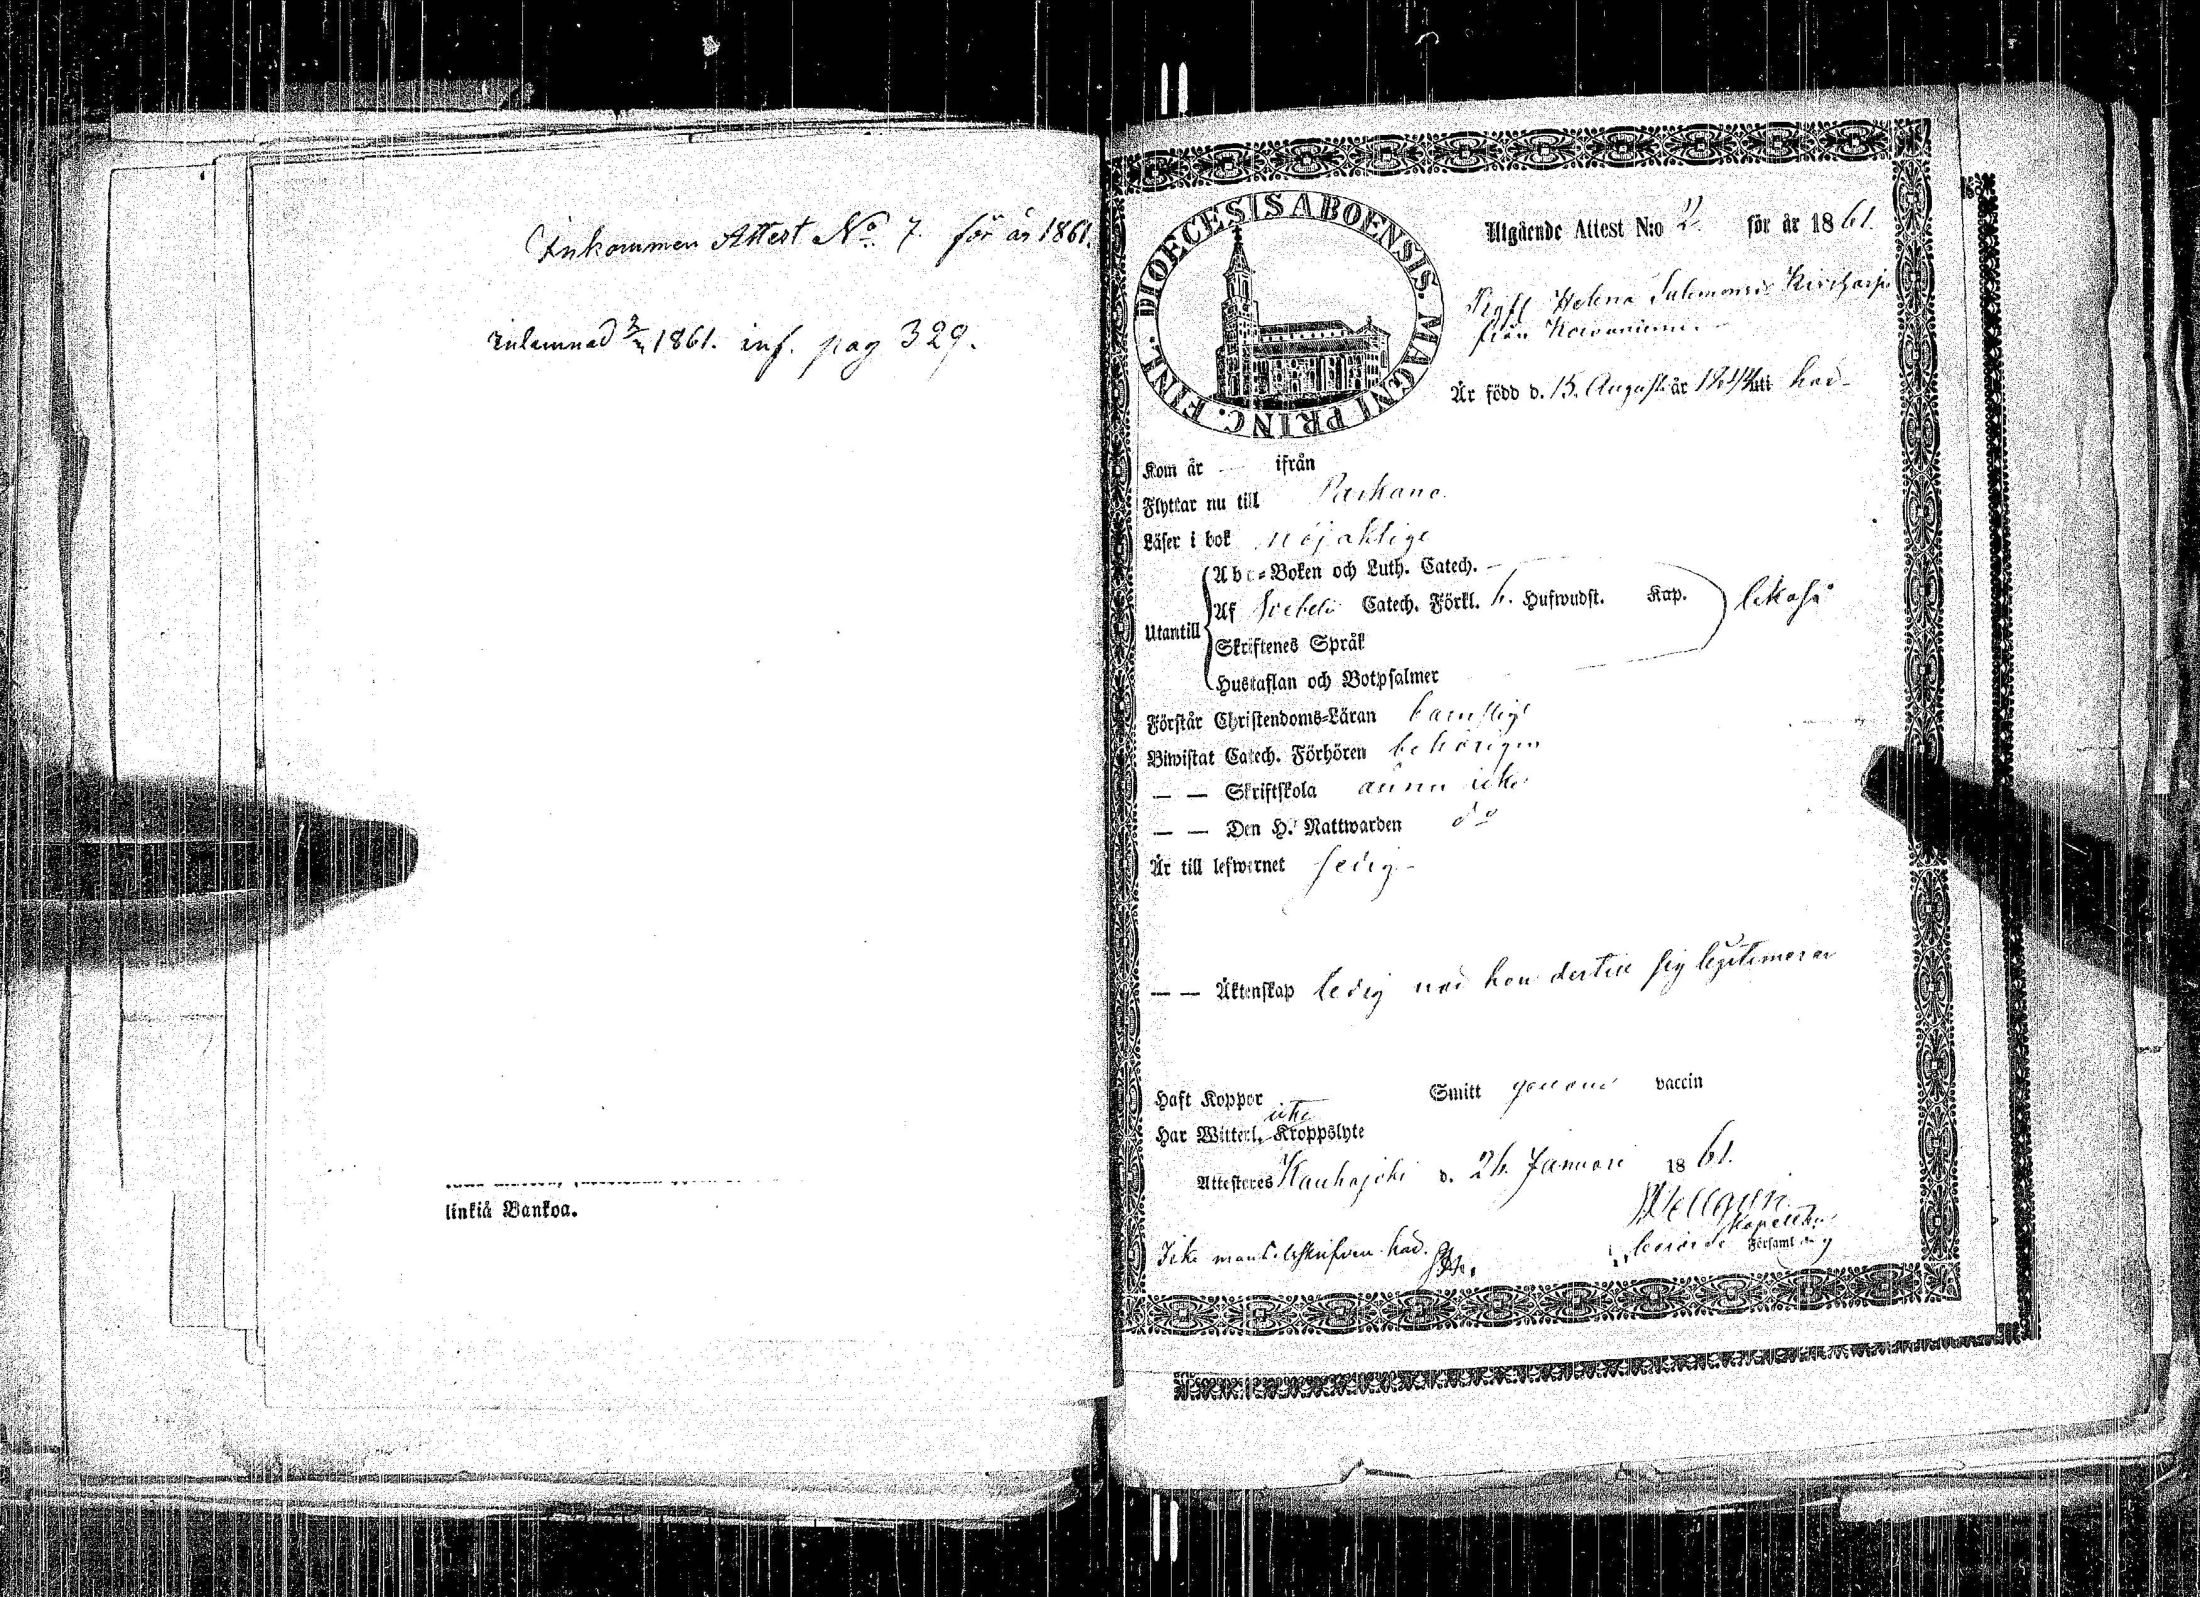 Inkommen Attest No. 7. för år 1861.
inlemnad 3/2 1861. inf. pag 329.
linkiä Pankoa.
DIOECESIS ABOENSIS. MAGNI PRINC. FINL.
Utgående Attest N:o 2. för år 1861.
Helena Salomonsd.
från
Är född d. 15. Augusti år 1844 uti här
Kom år — ifrån
Flyttar nu till Parkano.
Läser i bok nöjaktige
Utantill
Abc-Boken och Luth. Catech. —
Af Svebelii Catech. Förkl. 6. Hufwudst. Kap.
Skriftenes Språk
Hustaflan och Botpsalmer
likaså
Förstår Christendoms-Läran barnsligt
Biwistat Catech. Förhören behörigen
— — Skriftskola ännu icke
— — Den H. Nattwarden do
Är till lefwernet sedig
— — Äktenskap ledig när hon dertill sig legitimerar
Haft Koppor Smitt genom vaccin
Har Witterl. icke Kroppslyte
Attesteres Kauhajoki d. 26. Januari 1861.
Kapellan
Församling
Icke mantalsskrifven här.